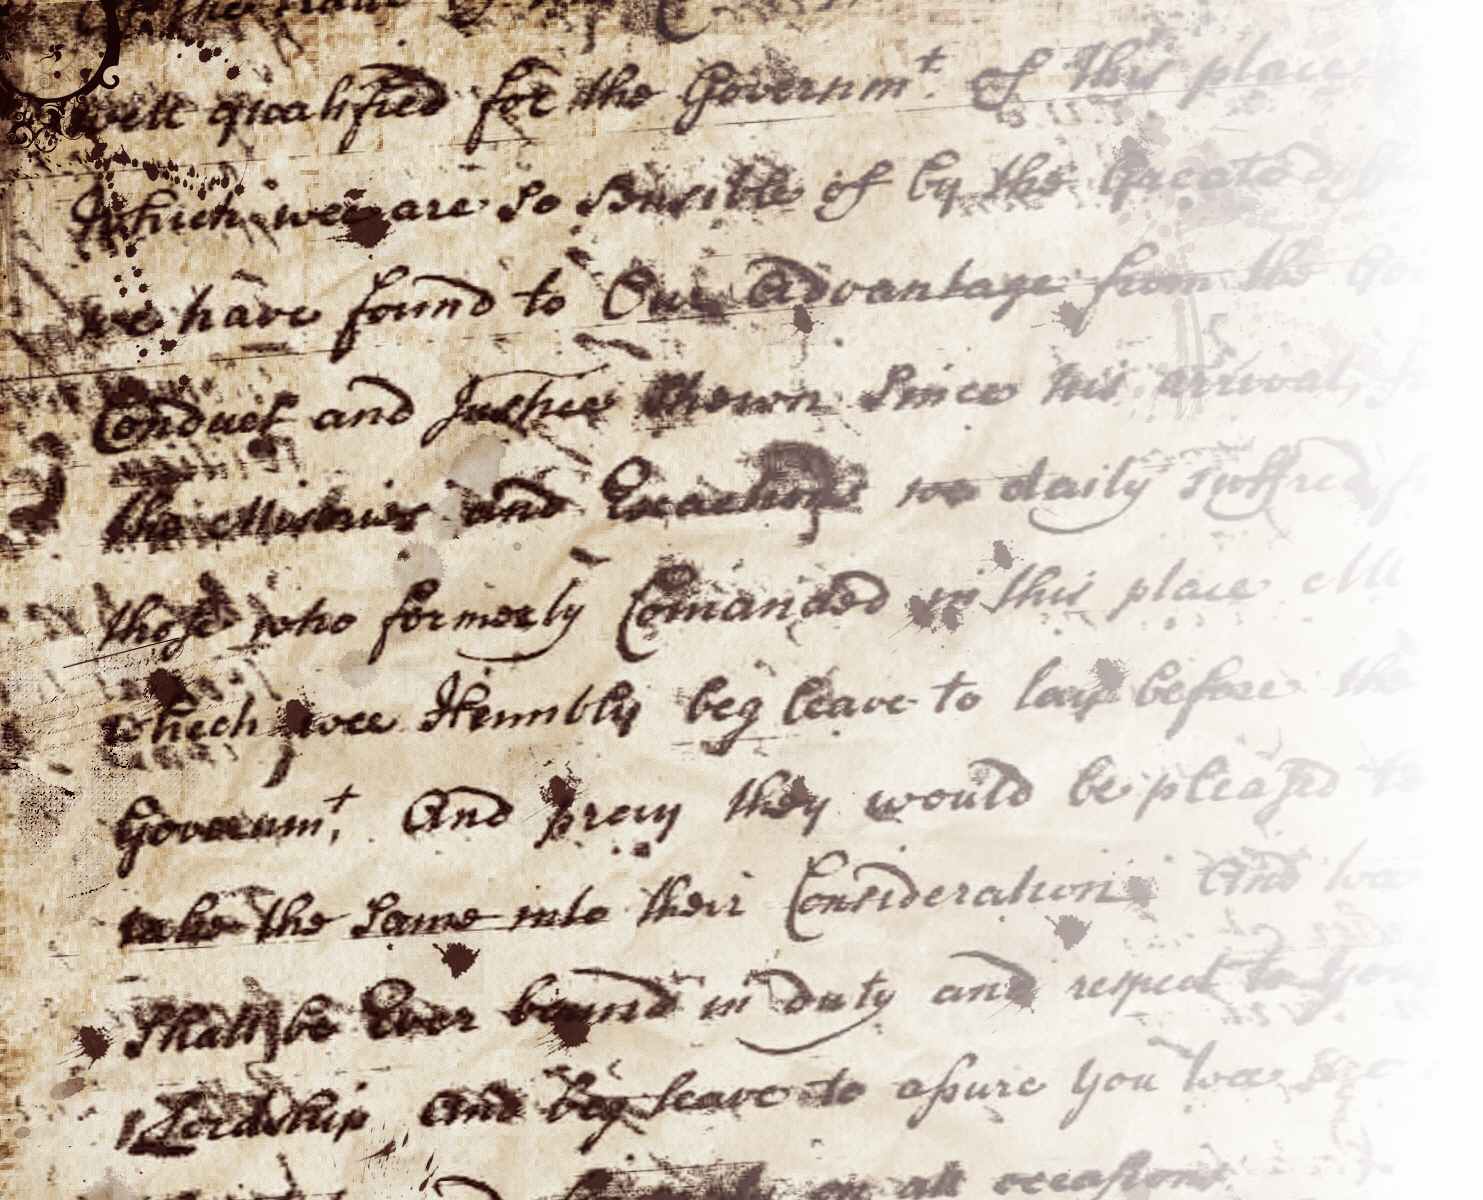 the
well qualified for the Governm.t Of This place
Which wee are So Sensible of by the Greate
we have found to Our Advantage from the
Conduct and Justice Shown Since his arrival,
the Miseries and Exactions wee daily suffred
those who formerly Comanded in this place
which wee Humbly beg leave to lay before the
Governm.t And pray they would be pleased to
take the Same into their Consideration And wee
Shall be Ever bound in duty and respect to Your
Lordship And beg leave to assure You wee are
on all occasions